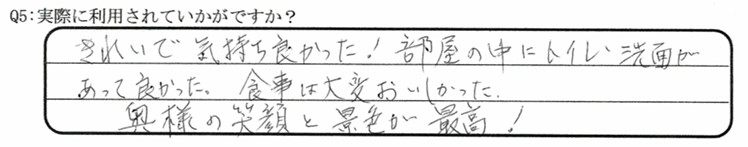 Q5:実際に利用されていかがですか？
きれいで気持ち良かった！部屋の中にトイレ洗面が
あって良かった。食事は大変おいしかった。
奥様の笑顔と景色が最高！